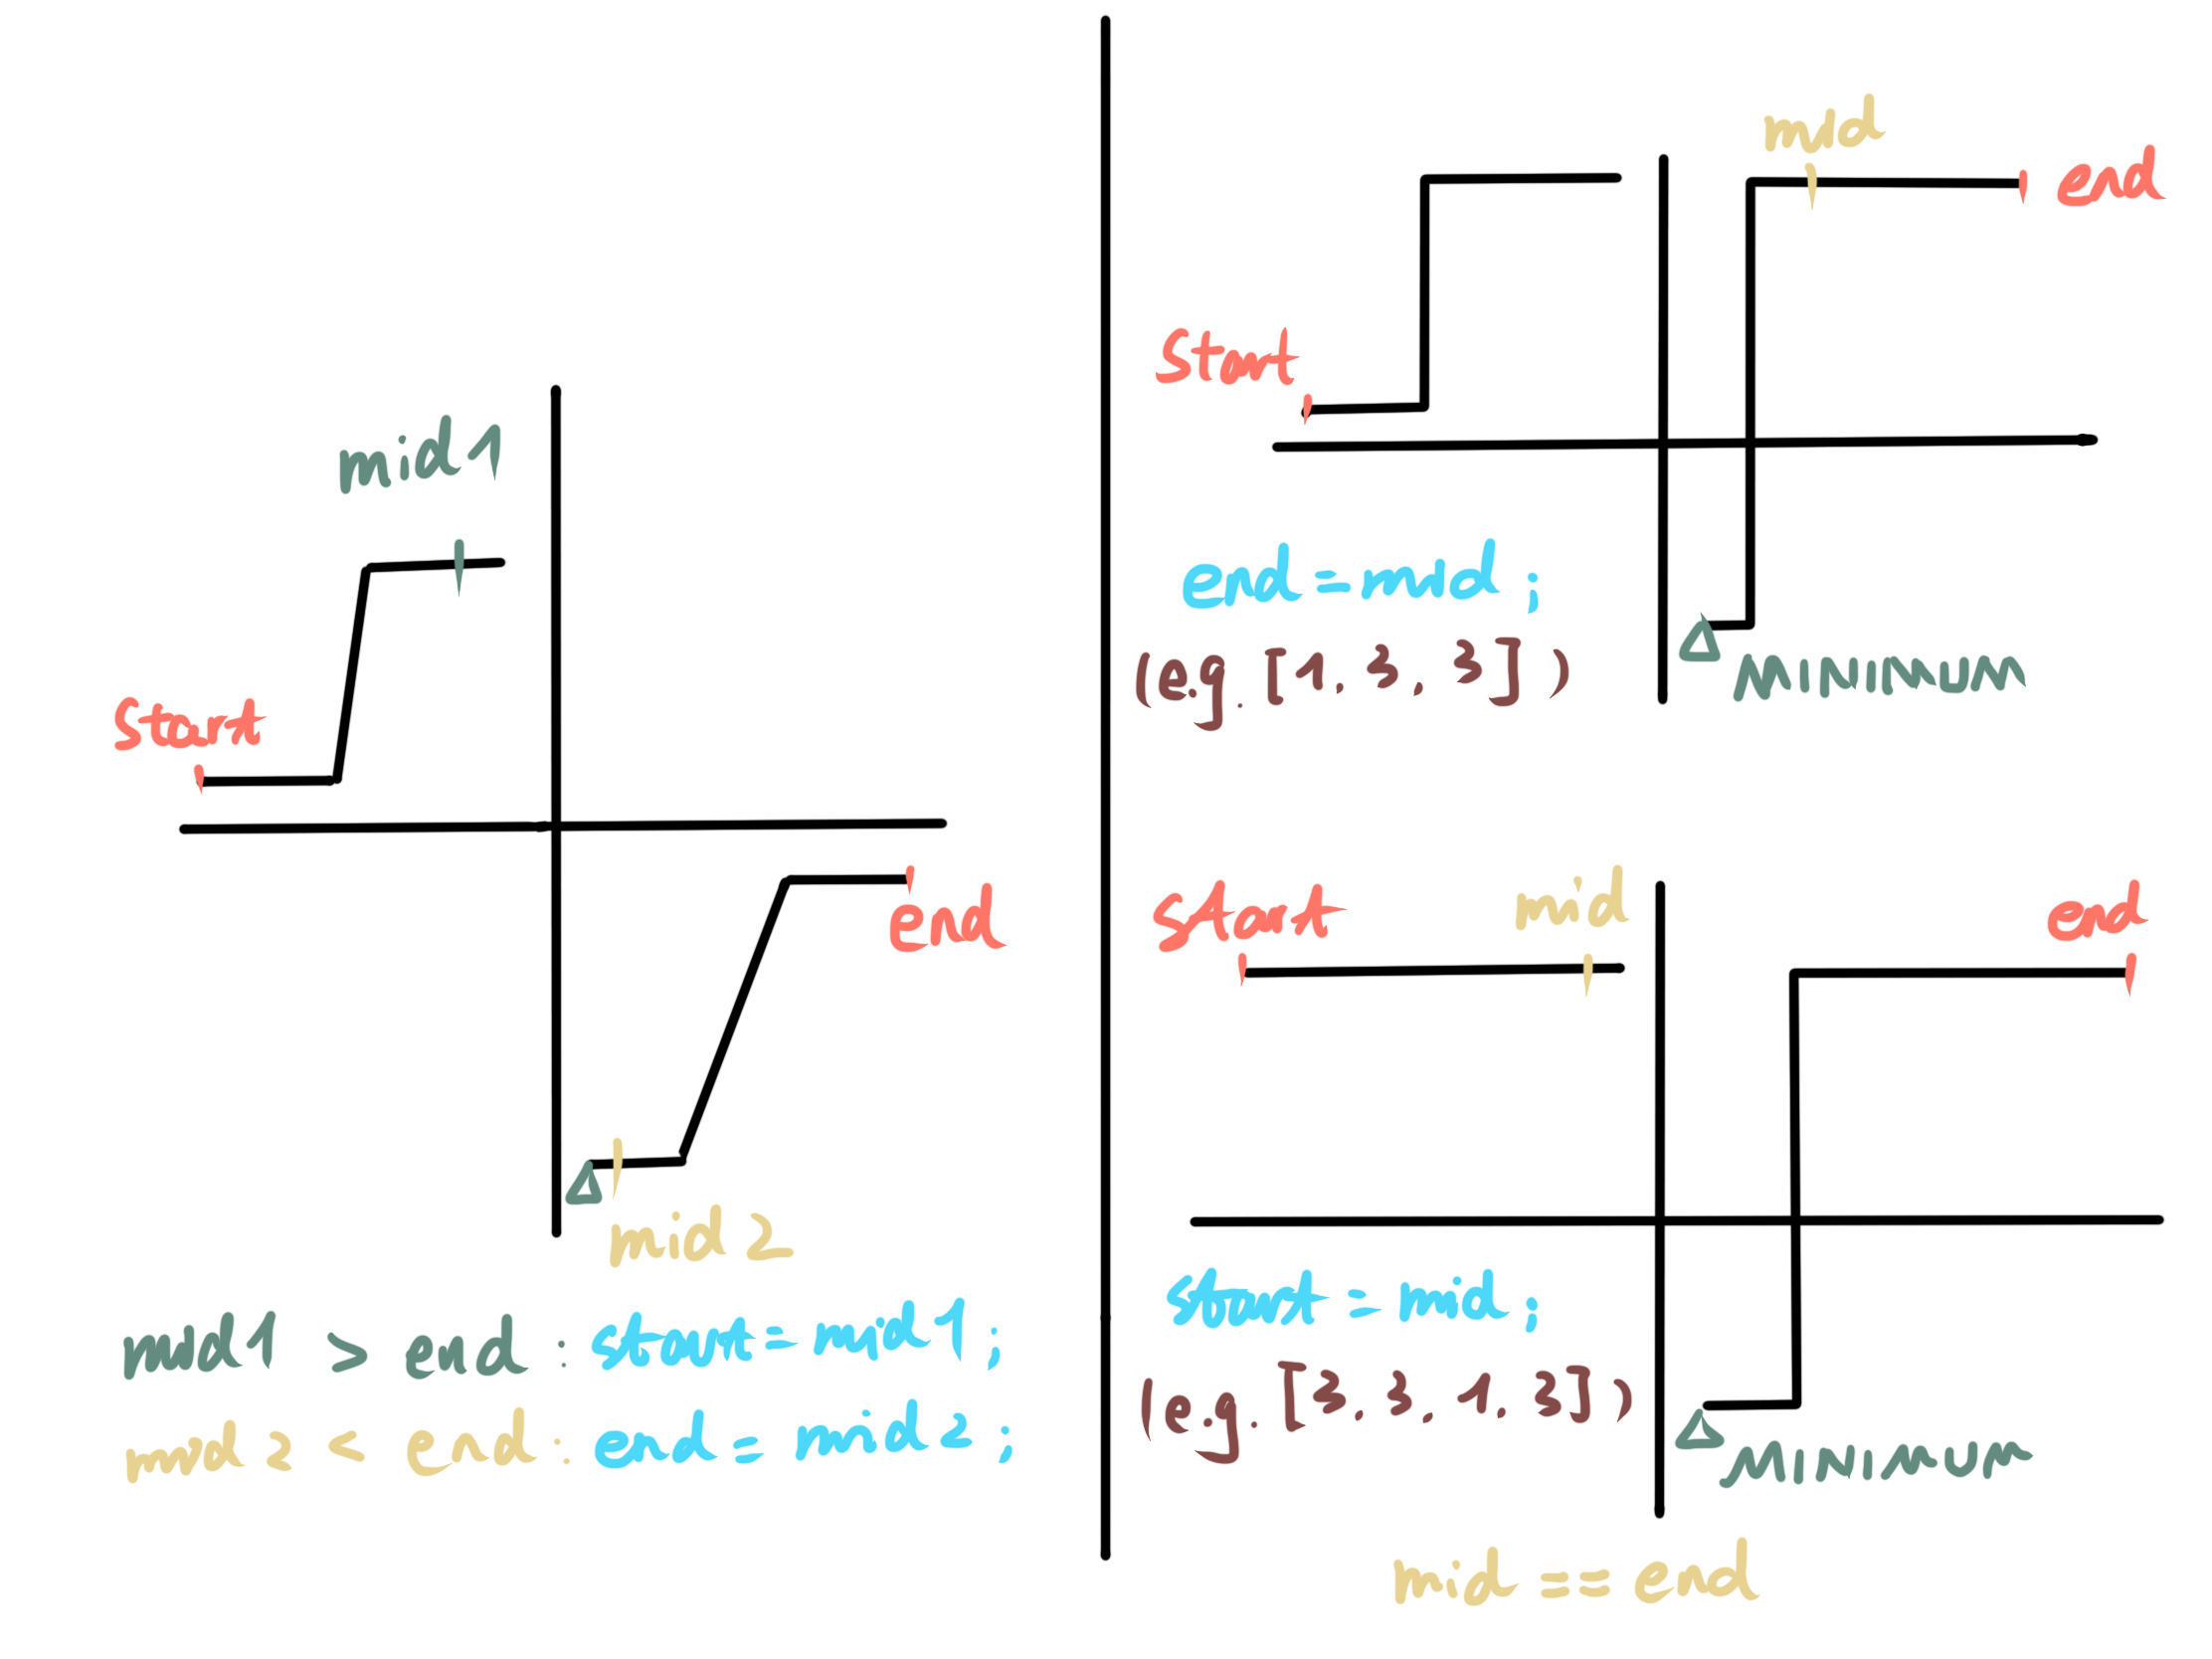 mid1
start
end
mid 2
mid1 > end : start = mid1 ;
mid 2 < end : end = mid 2 ;
mid
end
Start
end = mid ;
(eg. [1, 3, 3])
MINIMUM
start
mid
end
start = mid ;
(e.g. [3, 3, 1, 3])
MINIMUM
mid == end